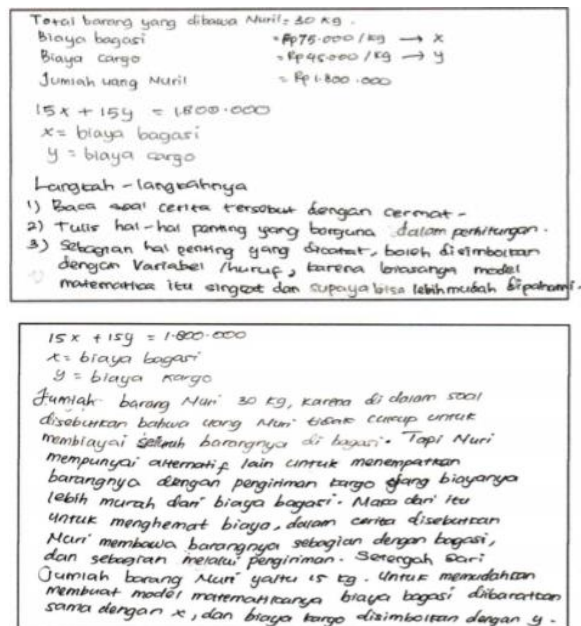 Total barang yang dibawa Nuril = 30 kg.
Biaya bagasi = Rp75.000 / kg → x
Biaya cargo = Rp45.000 / kg → y
Jumlah uang Nuril = Rp 1.800.000
15x + 15y = 1.800.000
x = biaya bagasi
y = biaya cargo
Langkah - langkahnya
1) Baca soal cerita tersebut dengan cermat.
2) Tulis hal-hal penting yang berguna dalam perhitungan.
3) Sebagian hal penting yang dicatat, boleh disimbolkan
dengan Variabel /huruf, karena biasanya model
matematika itu singkat dan supaya bisa lebih mudah dipahami.
15x + 15y = 1.800.000
x = biaya bagasi
y = biaya kargo
Jumlah barang Nuri 30 kg, karena di dalam soal
disebutkan bahwa uang Nuri tidak cukup untuk
membiayai seluruh barangnya di bagasi. Tapi Nuri
mempunyai alternatif lain untuk menempatkan
barangnya dengan pengiriman kargo yang biayanya
lebih murah dari biaya bagasi. Maka dari itu
untuk menghemat biaya, dalam cerita disebutkan
Nuri membawa barangnya sebagian dengan bagasi,
dan sebagian melalui pengiriman. Setengah dari
Jumlah barang Nuri yaitu 15 kg. Untuk memudahkan
membuat model matematikanya biaya bagasi diibaratkan
sama dengan x, dan biaya kargo disimbolkan dengan y.